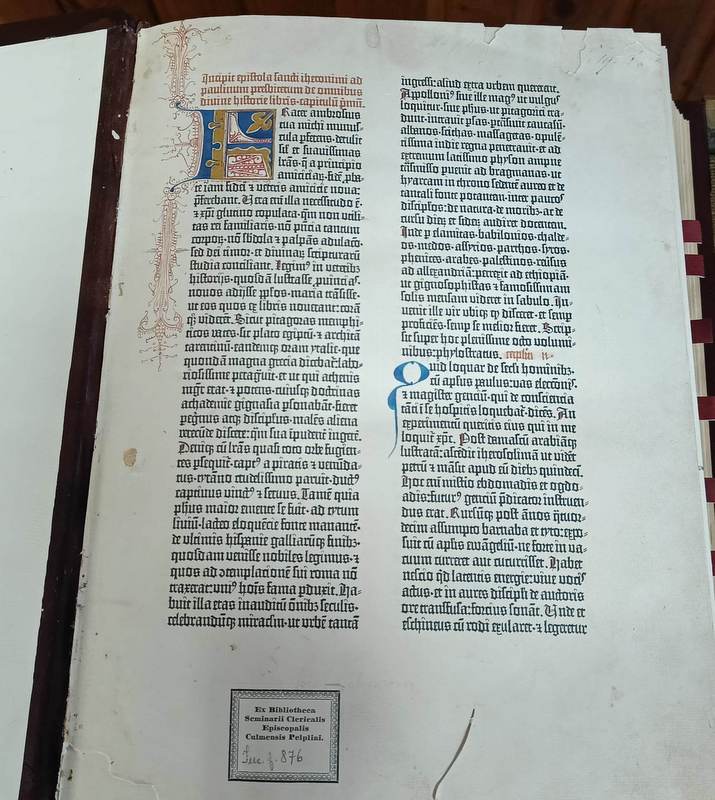 Incipit epistola sancti iheronimi ad
paulinum presbiterum de omnibus
divine historie libris·capitulū pmū.
Frater ambrosius
tua michi munus-
cula pferens·detulit
sil' et suavissimas
lrās·q̄ a principio
amicicias·fidē pba-
te iam fidei et veteris amicicie nova:
pferebant. Vera eni illa necessitudo ē·
et xpi glutino copulata·qm̄ non utili-
tas rei familiaris·nō pncia tantum
corporz·nō sbdola et palpās adulaco·
sed dei timor·et divinarz scripturarum
studia conciliant. Legim9 in veteribz
historijs·quosdā lustrasse puincias·
novos adisse pplos·maria trāsisse·
ut eos quos ex libris noverant: corā
qz viderēt. Sicut pitagoras memphi-
ticos vates·sic plato egiptū·et architā
tarentinū·eandemqz oram ytalie·que
quondā magna grecia dicebat·labo-
riosissime peragravit·et ut qui athenis
mgr̄ erat·et potens·cuiusqz doctrinas
achademie gignasia psonabāt·fieret
peginus atqz discipulus·malēs aliena
verecūde discere: qm̄ sua īpudent ingerē.
Deniqz cū lrās quasi toto orbe fugien-
tes psequit·capt9 a piratis et venūda-
tus·tyrāno crudelissimo paruit·duct9
captivus vinct9 et servus. Tamē quia
phus maior emente se fuit·ad tytum
livium·lacteo eloquēcie fonte manantē·
de ultimis hispanie galliarumqz finibz·
quosdam venisse nobiles legimus·et
quos ad ɔtemplacionē sui roma nō
traxerat: uni9 hoīs fama pduxit. Ha-
buit illa etas inauditū oībz seculis·
celebrandumqz miraclm·ut urbē tantā
ingressi: aliud extra urbem quererent.
Apolloni9 sive ille mag9 ut vulgus
loquitur·sive phus·ut pitagorici tra-
dunt·intravit psas·ptrāsivit caucasū·
albanos·scithas·massagetas·opulē-
tissima indie regna penetravit·et ad
extremum latissimo physon ampne
trāsmisso puenit ad bragmanas·ut
hyarcam in throno sedētē aureo et de
tantali fonte potantem·inter paucos
discipulos·de natura·de moribz·ac de
cursu dierz et siderz audiret docentem.
Inde p elamitas·babilonios·chalde-
os·medos·assyrios·parthos·syros·
phenices·arabes·palestinos·reusus
ad allexandriā·perrexit ad ethiopiā·
ut gignosophistas et famosissimam
solis mensam videret in sabulo. In-
venit ille vir ubiqz qd disceret·et semp
proficiēs·semp se melior fieret. Scrip-
sit super hoc plenissime octo volumi-
nibus: phylostratus.
Quid loquar de secli hominibz·
cū apłus paulus: vas eleccōis·
et magister genciū·qui de consciencia
tāti ī se hospitis loquebat·dicēs. An
experimentū queritis eius qui in me
loquit xpc. Post damascū arabiāqz
lustratā: ascēdit iherosolimā ut vidēt
petrū et māsit apud eū diebz quindeci.
Hoc eni misterio ebdomadis et ogdo-
adis: futur9 genciū pdicator instruen-
dus erat. Rursumqz post ānos q̄tuor-
decim assumpto barnaba et tyto: expo-
suit cū aplis ewāgeliū·ne forte in va-
cuum curreret aut cucurrisset. Habet
nescio qd latentis energie: vive vocis
actus·et in aures discipli de auctoris
ore transfusa: forcius sonat. Unde et
eschineus cū rodi exularet·et legeretur
Ex Bibliotheca
Seminarii Clericalis
Episcopalis
Culmensis Pelplini.
876